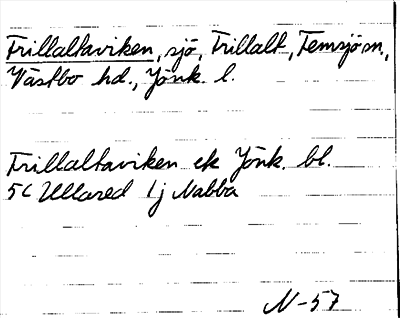 Frillaltaviken, sjö, Frillalt, Femsjö sn.,
Västbo hd., Jönk. l.
Frillaltaviken ek Jönk. bl.
5C Ullared 1j Nabba
N-57